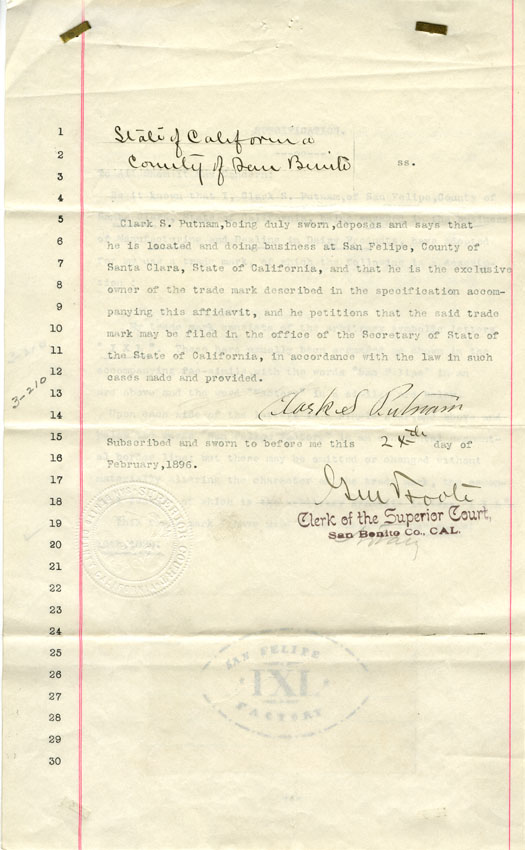 1
2
3
4
5
6
7
8
9
10
11
12
13
14
15
16
17
18
19
20
21
22
23
24
25
26
27
28
29
30
State of California
County of San Benito ss.
Clark S. Putnam,being duly sworn,deposes and says that
he is located and doing business at San Felipe, County of
Santa Clara, State of California, and that he is the exclusive
owner of the trade mark described in the specification accom-
panying this affidavit, and he petitions that the said trade
mark may be filed in the office of the Secretary of State of
the State of California, in accordance with the law in such
cases made and provided.
3-210
Clark S Putnam
Subscribed and sworn to before me this 24th day of
February,1896.
Clerk of the Superior Court,
San Benito Co., CAL.
SAN FELIPE
IXL
FACTORY